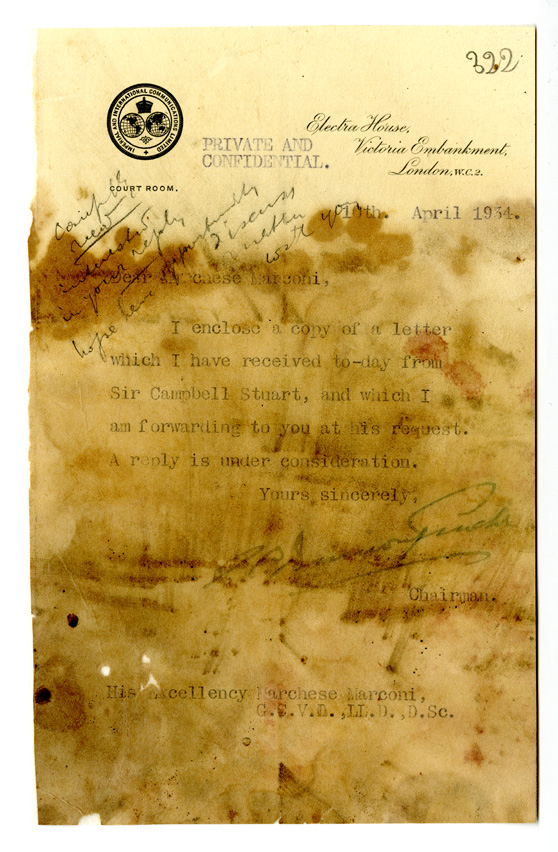 322
IMPERIAL AND INTERNATIONAL COMMUNICATIONS LIMITED
Electra House,
Victoria Embankment,
London, W.C.2.
PRIVATE AND
CONFIDENTIAL.
COURT ROOM.
10th. April 1934.
interested
in your reply
hope have opportunity
discuss
matter
with you
Dear Marchese Marconi,
I enclose a copy of a letter
which I have received to-day from
Sir Campbell Stuart, and which I
am forwarding to you at his request.
A reply is under consideration.
Yours sincerely,
Chairman.
His Excellency Marchese Marconi,
G.C.V.O.,LL.D.,D.Sc.